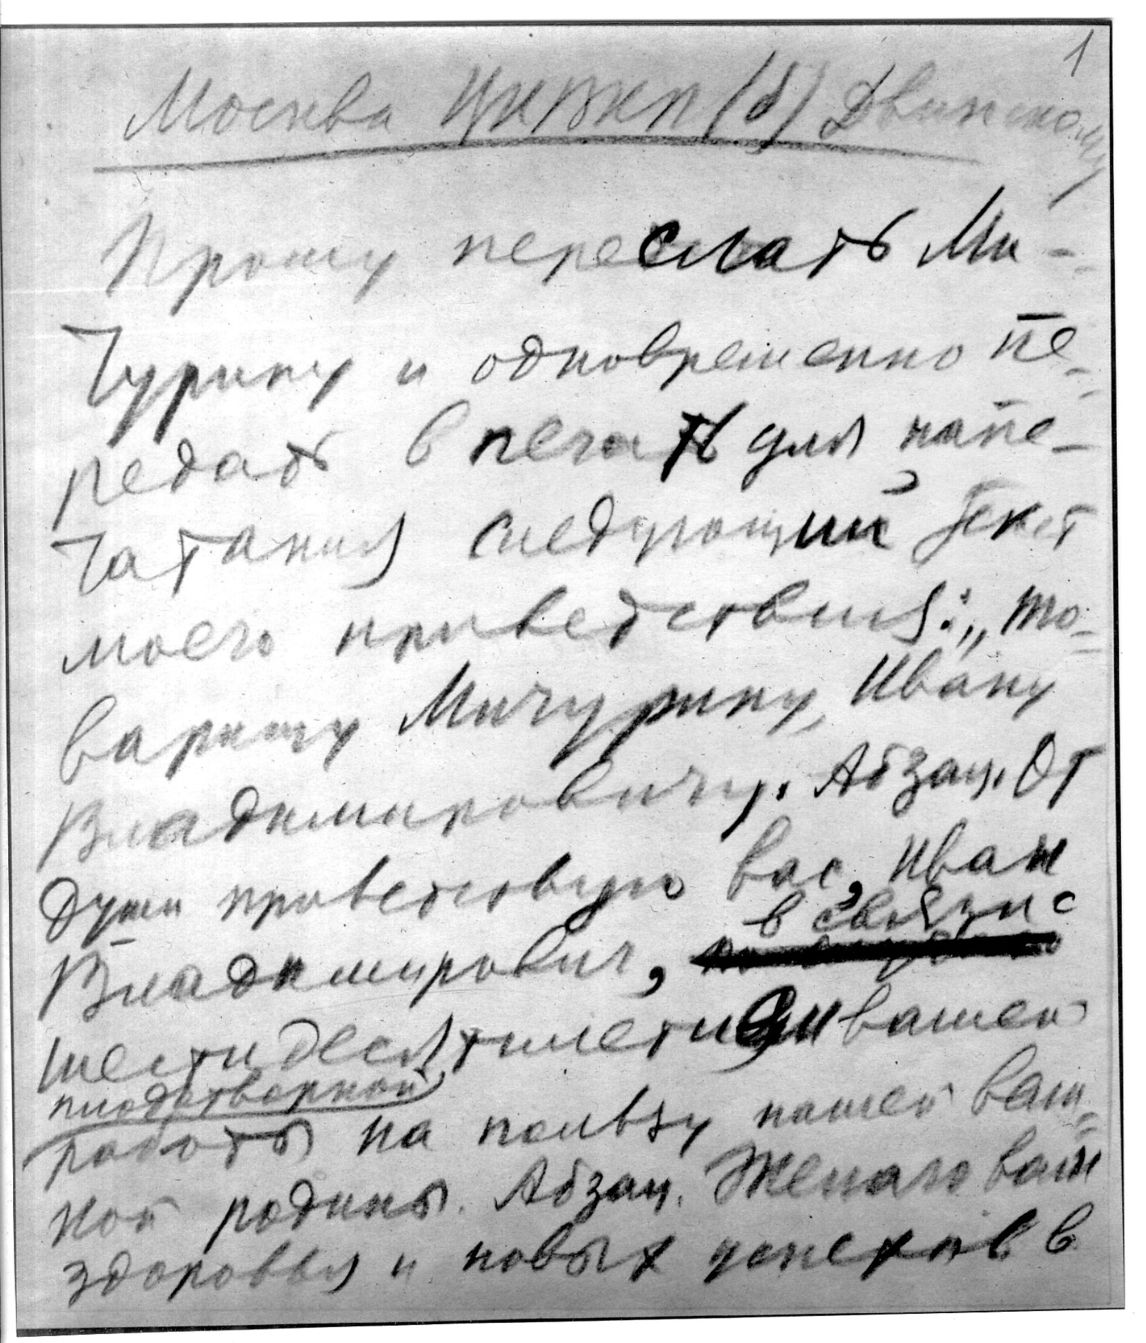 1
Москва ЦКВКП(б) Двинскому
Прошу переслать Ми-
чурину и одновременно пе-
редать в печать для напе-
чатания следующий текст
моего приветствия: „То-
варищу Мичурину, Ивану
Владимировичу. Абзац. От
души приветствую вас, Иван
в связи с
Владимирович,
шестидесятилетием вашей
плодотворной
работы на пользу нашей
ной родины. Абзац. Желаю вам
здоровья и новых успехов в